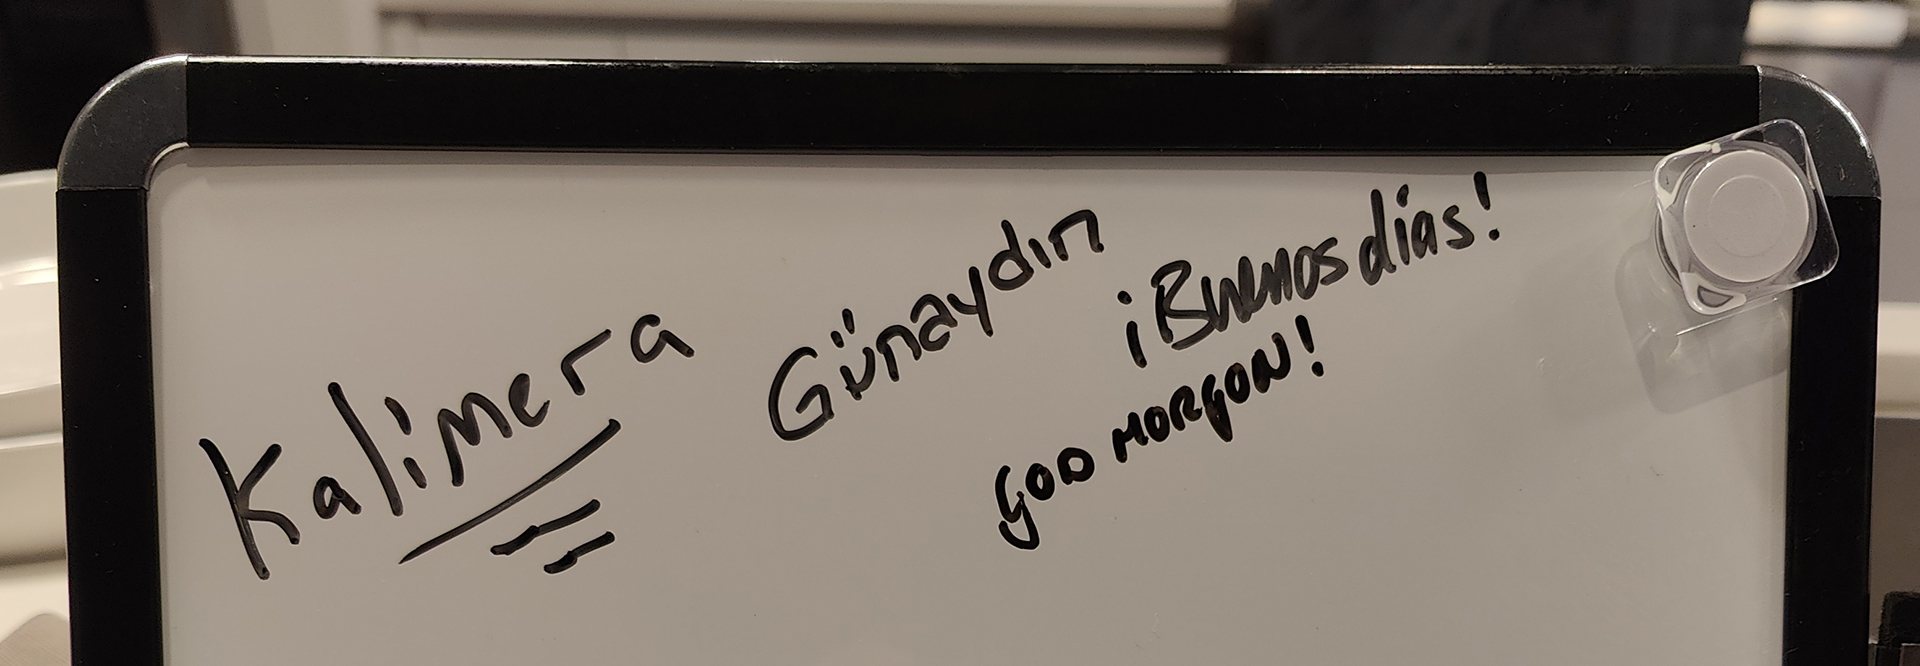 Kalimera
Günaydın
¡Buenos días!
GOD MORGON!